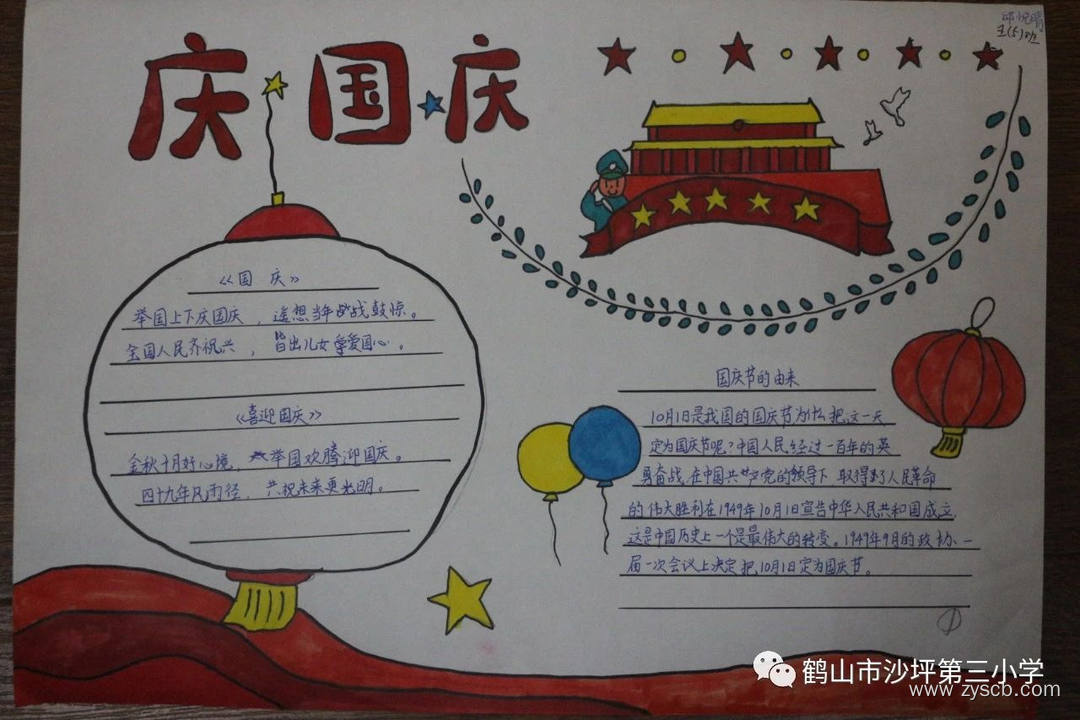 庆国庆
五(5)班
《国 庆》
举国上下庆国庆，遥想当年战鼓惊。
全国人民齐祝兴，皆出儿女爱国心。
《喜迎国庆》
金秋十月好心境，举国欢腾迎国庆。
四十九年风雨径，共祝未来更光明。
国庆节的由来
10月1日是我国的国庆节为什么把这一天
定为国庆节呢？中国人民经过一百年的英
勇奋战，在中国共产党的领导下取得了人民革命
的伟大胜利在1949年10月1日宣告中华人民共和国成立
这是中国历史上一个是最伟大的转变。1949年9月的政协一
届一次会议上决定把10月1日定为国庆节。
鹤山市沙坪第三小学
www.zyscb.com